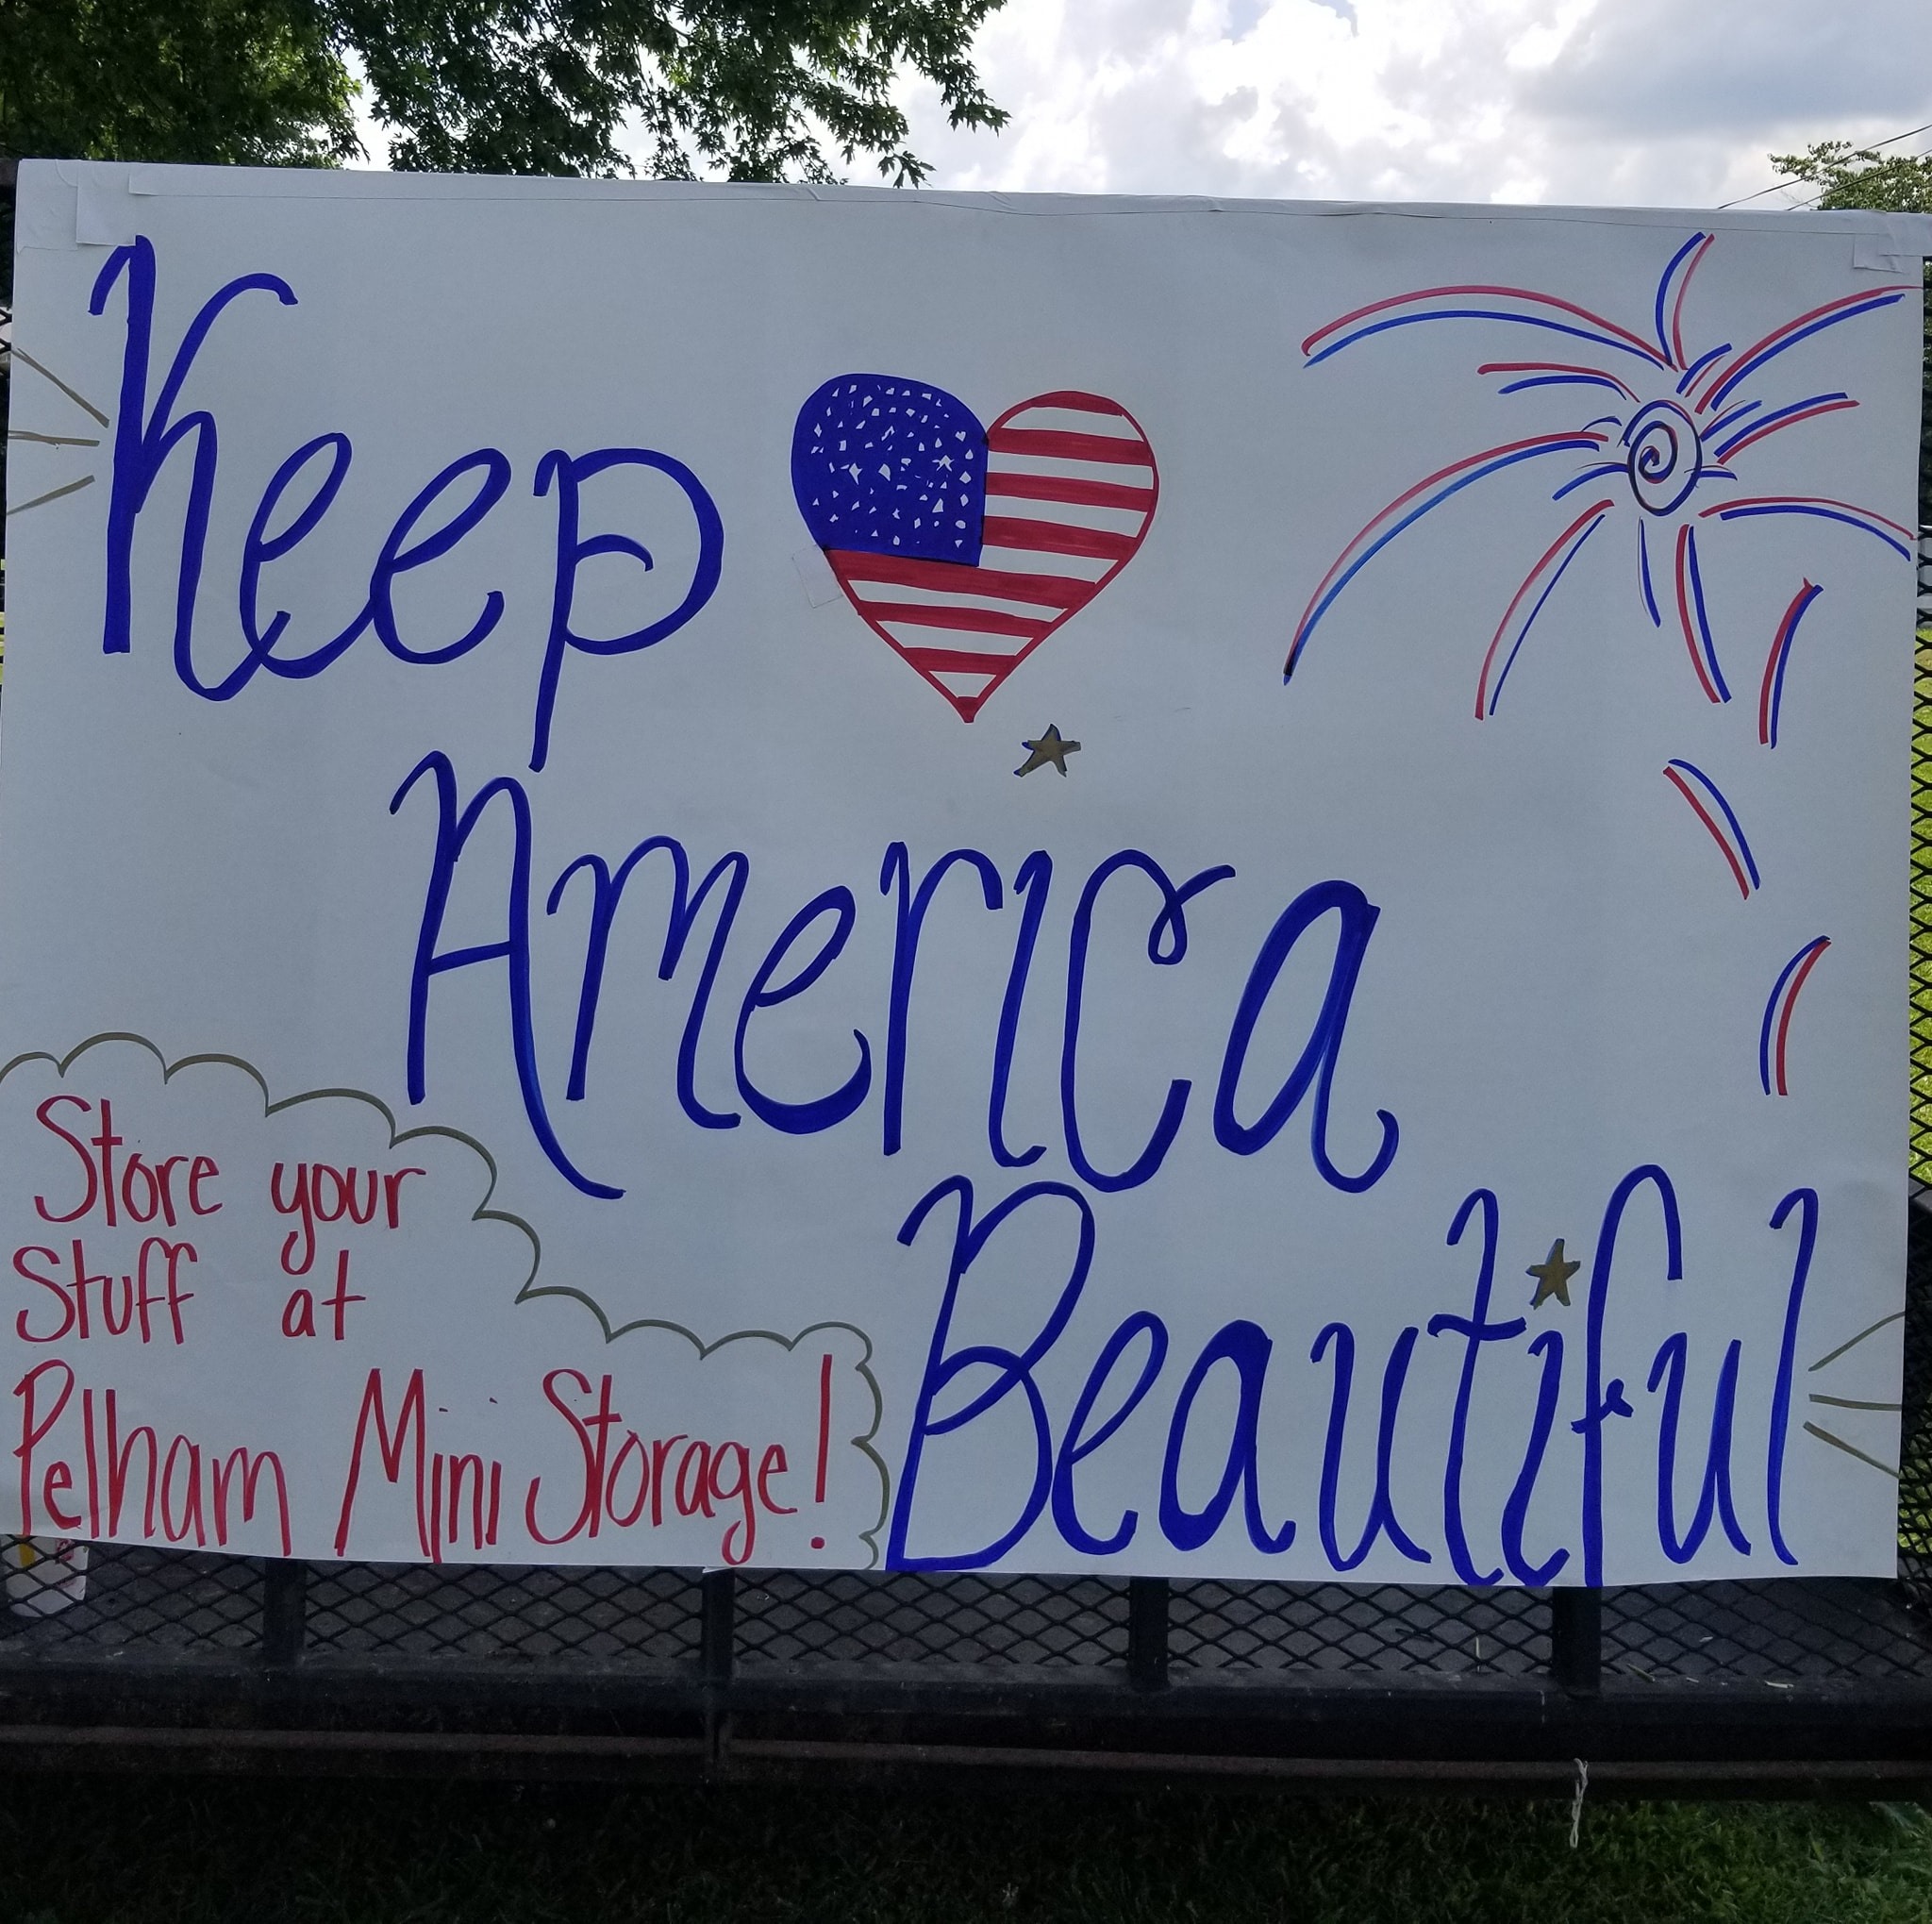 Keep
America
Beautiful
Store your
Stuff at
Pelham Mini Storage!